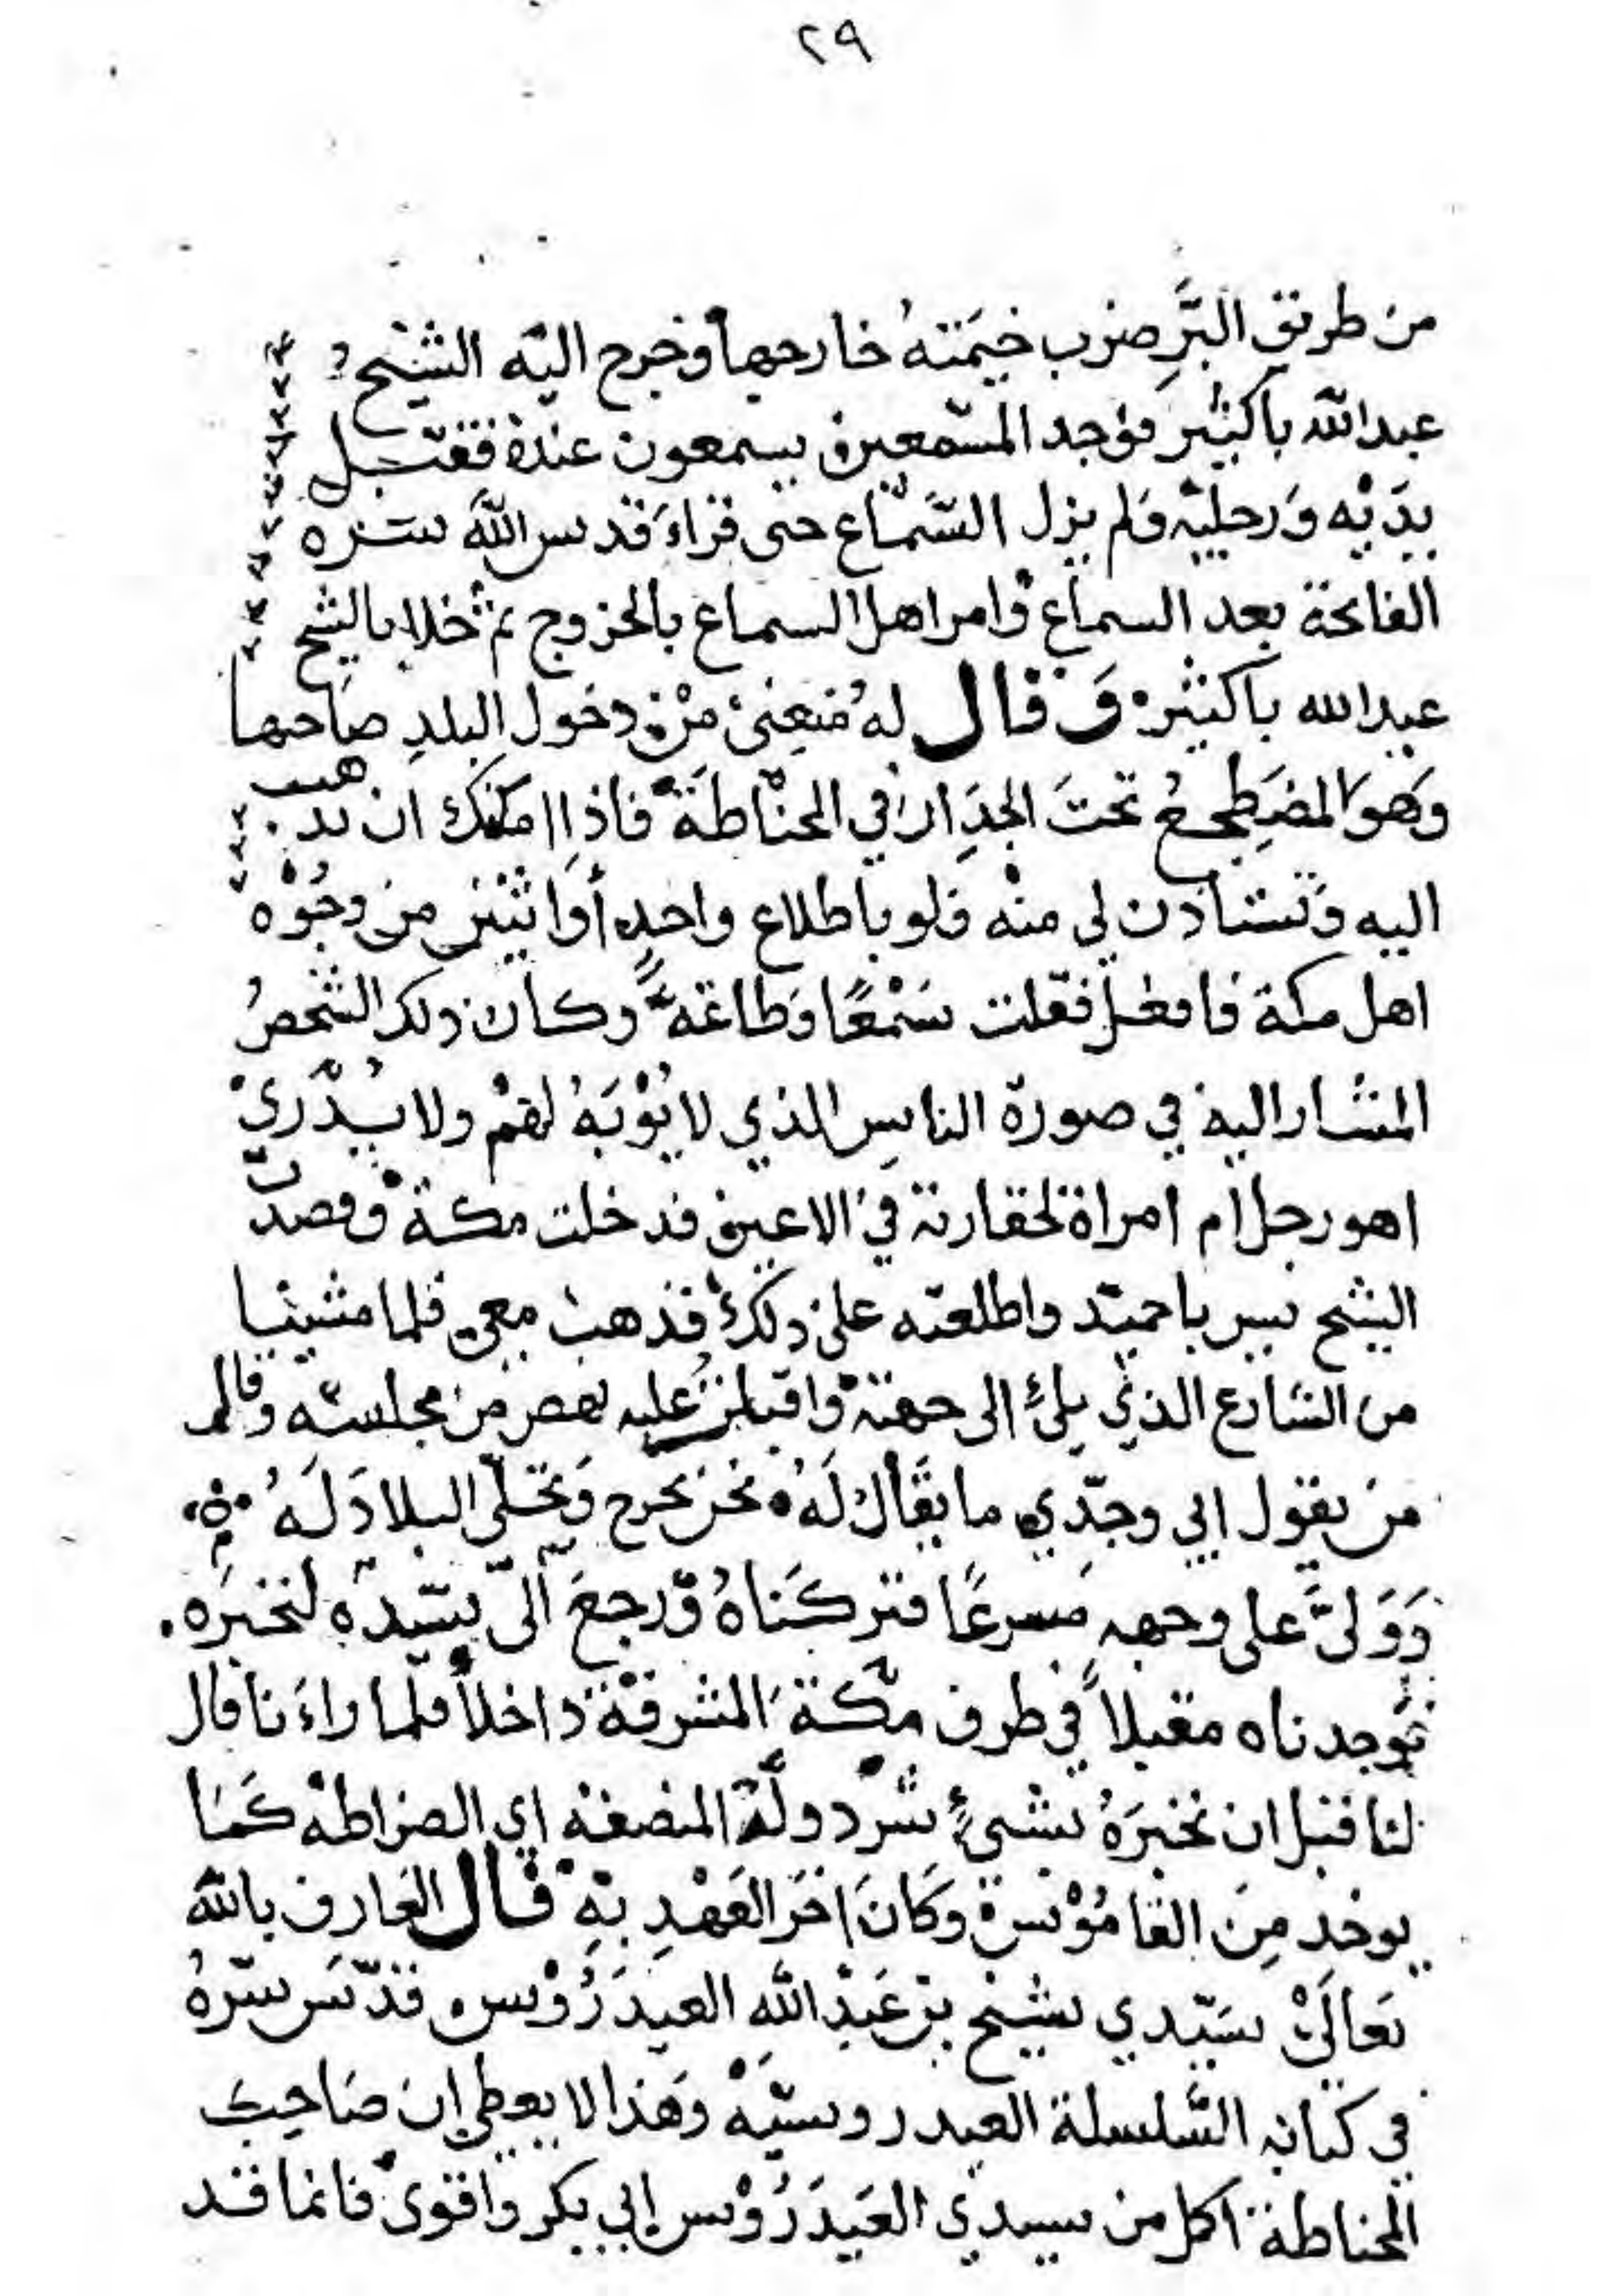 ٢٩
من طريق البَّرِ ضرب خيَمَتهُ خارجها وخرج اليه الشيخُ
عبدالله باكثير فوجد المسّمعين يسمعون عنده فقبّل
يدَيْه وَرجليْه وَلم يزل السَّمَاع حتى قراءَ قدس اللهَ سره
الفاتحة بعد السماع وامر اهل السماع بالخروج ثم خلا بالشيخ
عبدالله باكثير وَ قال لهُ منعِنى منْ دخول البلدِ صاحبها
وَهوَ المضَطِجعُ تحتَ الجِدَار في الحنّاطَة فاذا امكنك ان تذهب
اليه وَتستاذن لي منْه وَلو باطلاع واحدٍ أو اثنين من وجُوْه
اهل مكة فافعل فقلت سَمْعًا وَطاعَة وكان ذلك الشخصُ
المشار اليه في صورة الناسِ الذي لا يُؤْبَهُ لهمْ ولا يُدْرَىْ
اهو رجل ام امراة لحقارته في الاعين فدخلت مكة وقصدتّ
الشيخ يس باحميّد واطلعته على ذلك فذهب معى فلما مشينا
من الشارع الذي يلئ الى جهتهْ واقبلنَا عليه نهض من مجلسه وقال لم
من يقول ابي وجدّي ما يقَال لَهُ نحن نخرج وَنخلّي البلادَ لَهُ
وَوَلىَّ على وجههِ مسرعًا فتركنَاهُ وَّرجعَ الىّ سيّده لنخبرَه
فوجدناه مقبلاً في طرف مكّة المشرفة داخلاً فلما راءَنا قال
لنا قبل ان نخبرَهُ بشيئٍ سَرّ دولة المضغنه اي الضراطه كَما
يوخذ مِن القامُوْس وَكانَ اخَر العَهْدِ بهِ قال العَارف بالله
تعالَىْ سَيّدي شيْخ بن عَبْدِ اللهِ العيدَرُوْس قدّسَ سّرهُ
في كتابه السّلسلة العيدروسيّهْ وَهَذا لا يعطي ان صَاحِبَ
الحناطة اكمل من سيدي العَيدَرُوْس ابي بكر واقوى فانما قد